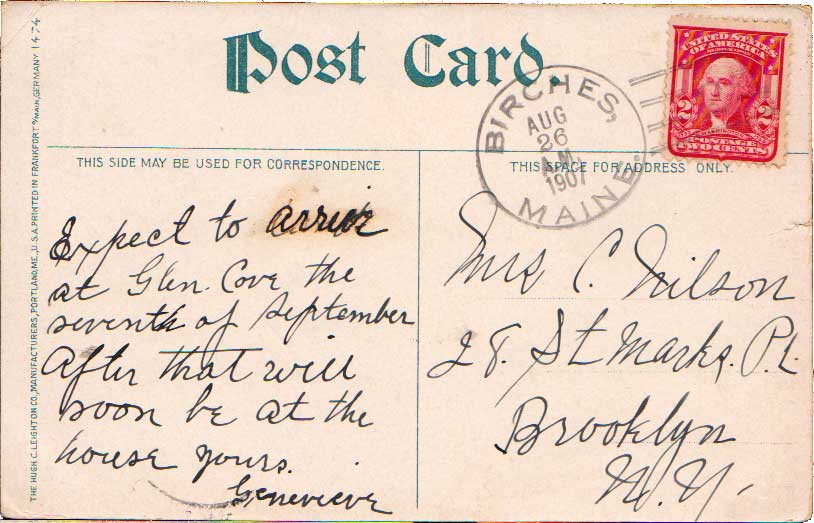 Post Card.
THIS SIDE MAY BE USED FOR CORRESPONDENCE.
THIS SPACE FOR ADDRESS ONLY.
BIRCHES,
AUG
26
A.M.
1907
MAINE.
UNITED STATES
OF AMERICA
2 2
POSTAGE
TWO CENTS
Expect to arrive
at Glen Cove the
seventh of September
After that will
soon be at the
house yours.
Genevieve
Mrs C. Nilson
28. St Marks. Pl.
Brooklyn
N.Y.
THE HUGH C. LEIGHTON CO., MANUFACTURERS, PORTLAND, ME., U.S.A. PRINTED IN FRANKFORT o/MAIN, GERMANY 1474